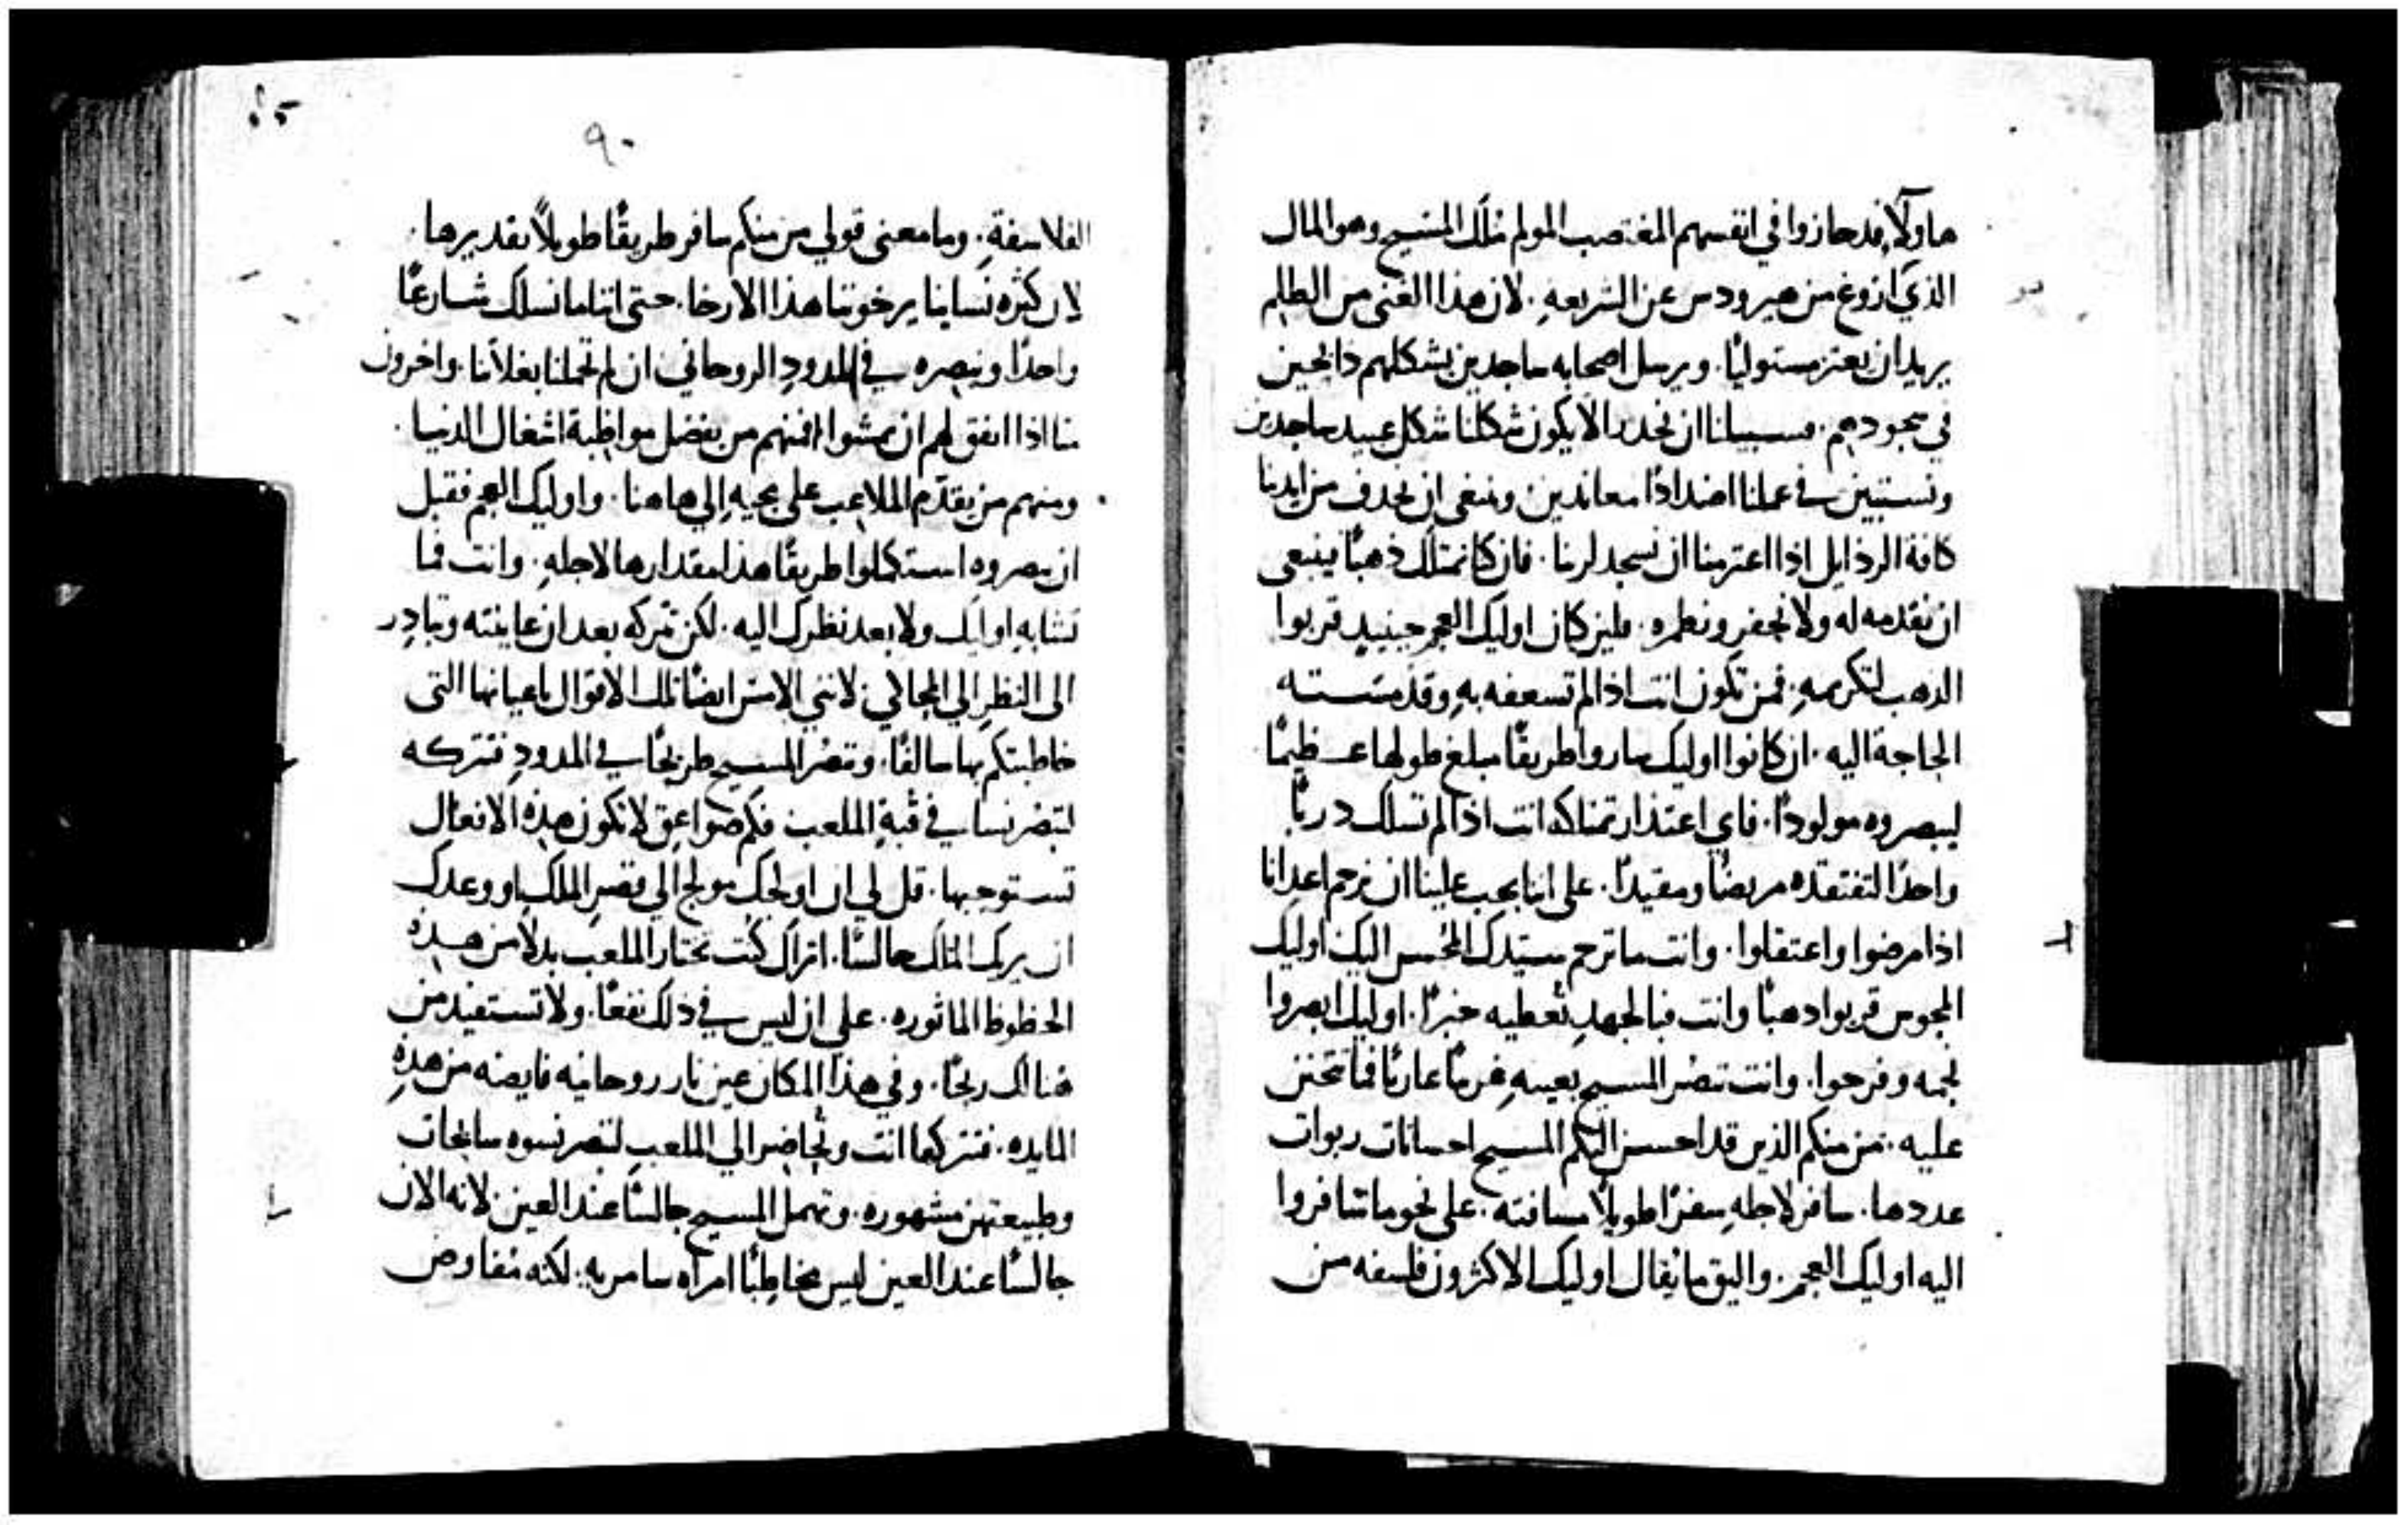 هاولا قد حازوا في انفسهم المغتصب المولم ملك المسيح وهو المال
الذي ازوغ من هيرودس عن الشريعه. لان هذا الغني من الظلم
يريد ان يعتز مستوليًا. ويرسل اصحابه ساجدين بشكلهم ذابحين
في سجودهم. فسبيلنا ان نحدر الا يكون شكلنا شكل عبيد ساجدين
ونستبين في عملنا اضدادًا معاندين وينبغي ان نحدف من ايدينا
كافة الرذايل اذا اعتزمنا ان نسجد لربنا. فان كنا نمتلك ذهبًا ينبغي
ان نقدمه له ولا نحفر ونطمره. فلين كان اوليك العجم حينيدٍ قربوا
الذهب لتكريمهِ. فمن تكون انت اذا لم تسعفه بهِ وقد مسته
الحاجة اليه. ان كانوا اوليك ساروا طريقًا مبلغ طولها عظيمًا
ليبصروه مولودًا. فاي اعتذار تمتلكه انت اذا لم تسلك دربًا
واحدًا لتفتقده مريضًا ومقيدًا. على اننا يجب علينا ان نرحم اعدانا
اذا مرضوا واعتقلوا. وانت ما ترحم سيدك المحسن اليك اوليك
المجوس قربوا دهبًا وانت فبالجهدِ تعطيه خبزًا. اوليك ابصروا
نجمه وفرحوا. وانت تبصر المسيح بعينهِ غريبًا عاريًا فما تتحنن
عليه. من منكم الذين قد احسن اليكم المسيح احسانات ربوات
عددها. سافر لاجلهِ سفرًا طويلًا مسافته. على نحو ما سافروا
اليه اوليك العجم. واليق ما يقال اوليك الاكثرون فلسفه من
٩٠
الفلاسفةِ. وما معنى قولي من منكم سافر طريقًا طويلًا تقديرها.
لان كثره نساينا يرخوننا هذا الارخا. حتى اننا ما نسلك شارعًا
واحدًا ونبصره في المدودِ الروحاني ان لم تحملنا بغلاتنا. واخرون
منا اذا اتفق لهم ان يمشوا فمنهم من يفضل مواظبة اشغال الدنيا.
ومنهم من يقدّم الملاعب على مجيهِ الي هاهنا. واوليك العجم فقبل
ان يبصروه استكملوا طريقًا هذا مقدارها لاجلهِ. وانت فما
تشابه اوليك ولا بعد نظرك اليه. لكن تتركه بعد ان عاينته وتبادر
الى النظر الي المجالي لانني الامس ايضًا تلك الاقوال باعيانها التي
خاطبتكم بها سالفًا. وتبصر المسيح طريحًا في المدودِ تتركه
لتبصر نسا في قبةِ الملعب فكم صواعق لا تكون هذه الافعال
تستوجبها. قل لي ان اولجك مولج الي قصر الملك او وعدك
ان يريك الملك جالسًا. اتراك كنت تختار الملعب بدلًا من هذه
الحظوظ الماثوره. علي ان ليس في ذلك نفعًا. ولا تستفيد من
هنالك ربحًا. وفي هذا المكان عين نار روحانيه فايضه من هذهِ
المايده. فتتركها انت وتحاضر الي الملعب لتبصر نسوه سابحات
وطبيعتهن مشهوره. وتهمل المسيح جالسًا عند العين لانه الان
جالسًا عند العين ليس مخاطبًا امراه سامريه. لكنه مفاوض